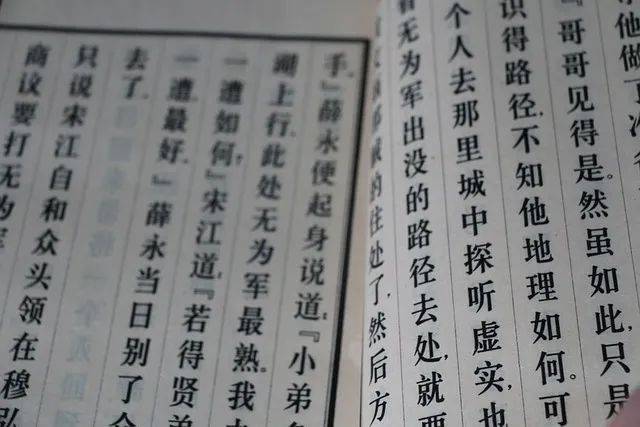 他做了
『哥哥见得是。然虽如此,只是
识得路径,不知他地理如何。可
个人去那里城中探听虚实,也
看无为军出没的路径去处,就要
的住处了,然后方
手。』薛永便起身说道:『小弟多
湖上行,此处无为军最熟。我
一遭如何?』宋江道:『若得贤弟
一遭最好。』薛永当日别了
去了。
只说宋江自和众头领在穆弘
商议要打无为军